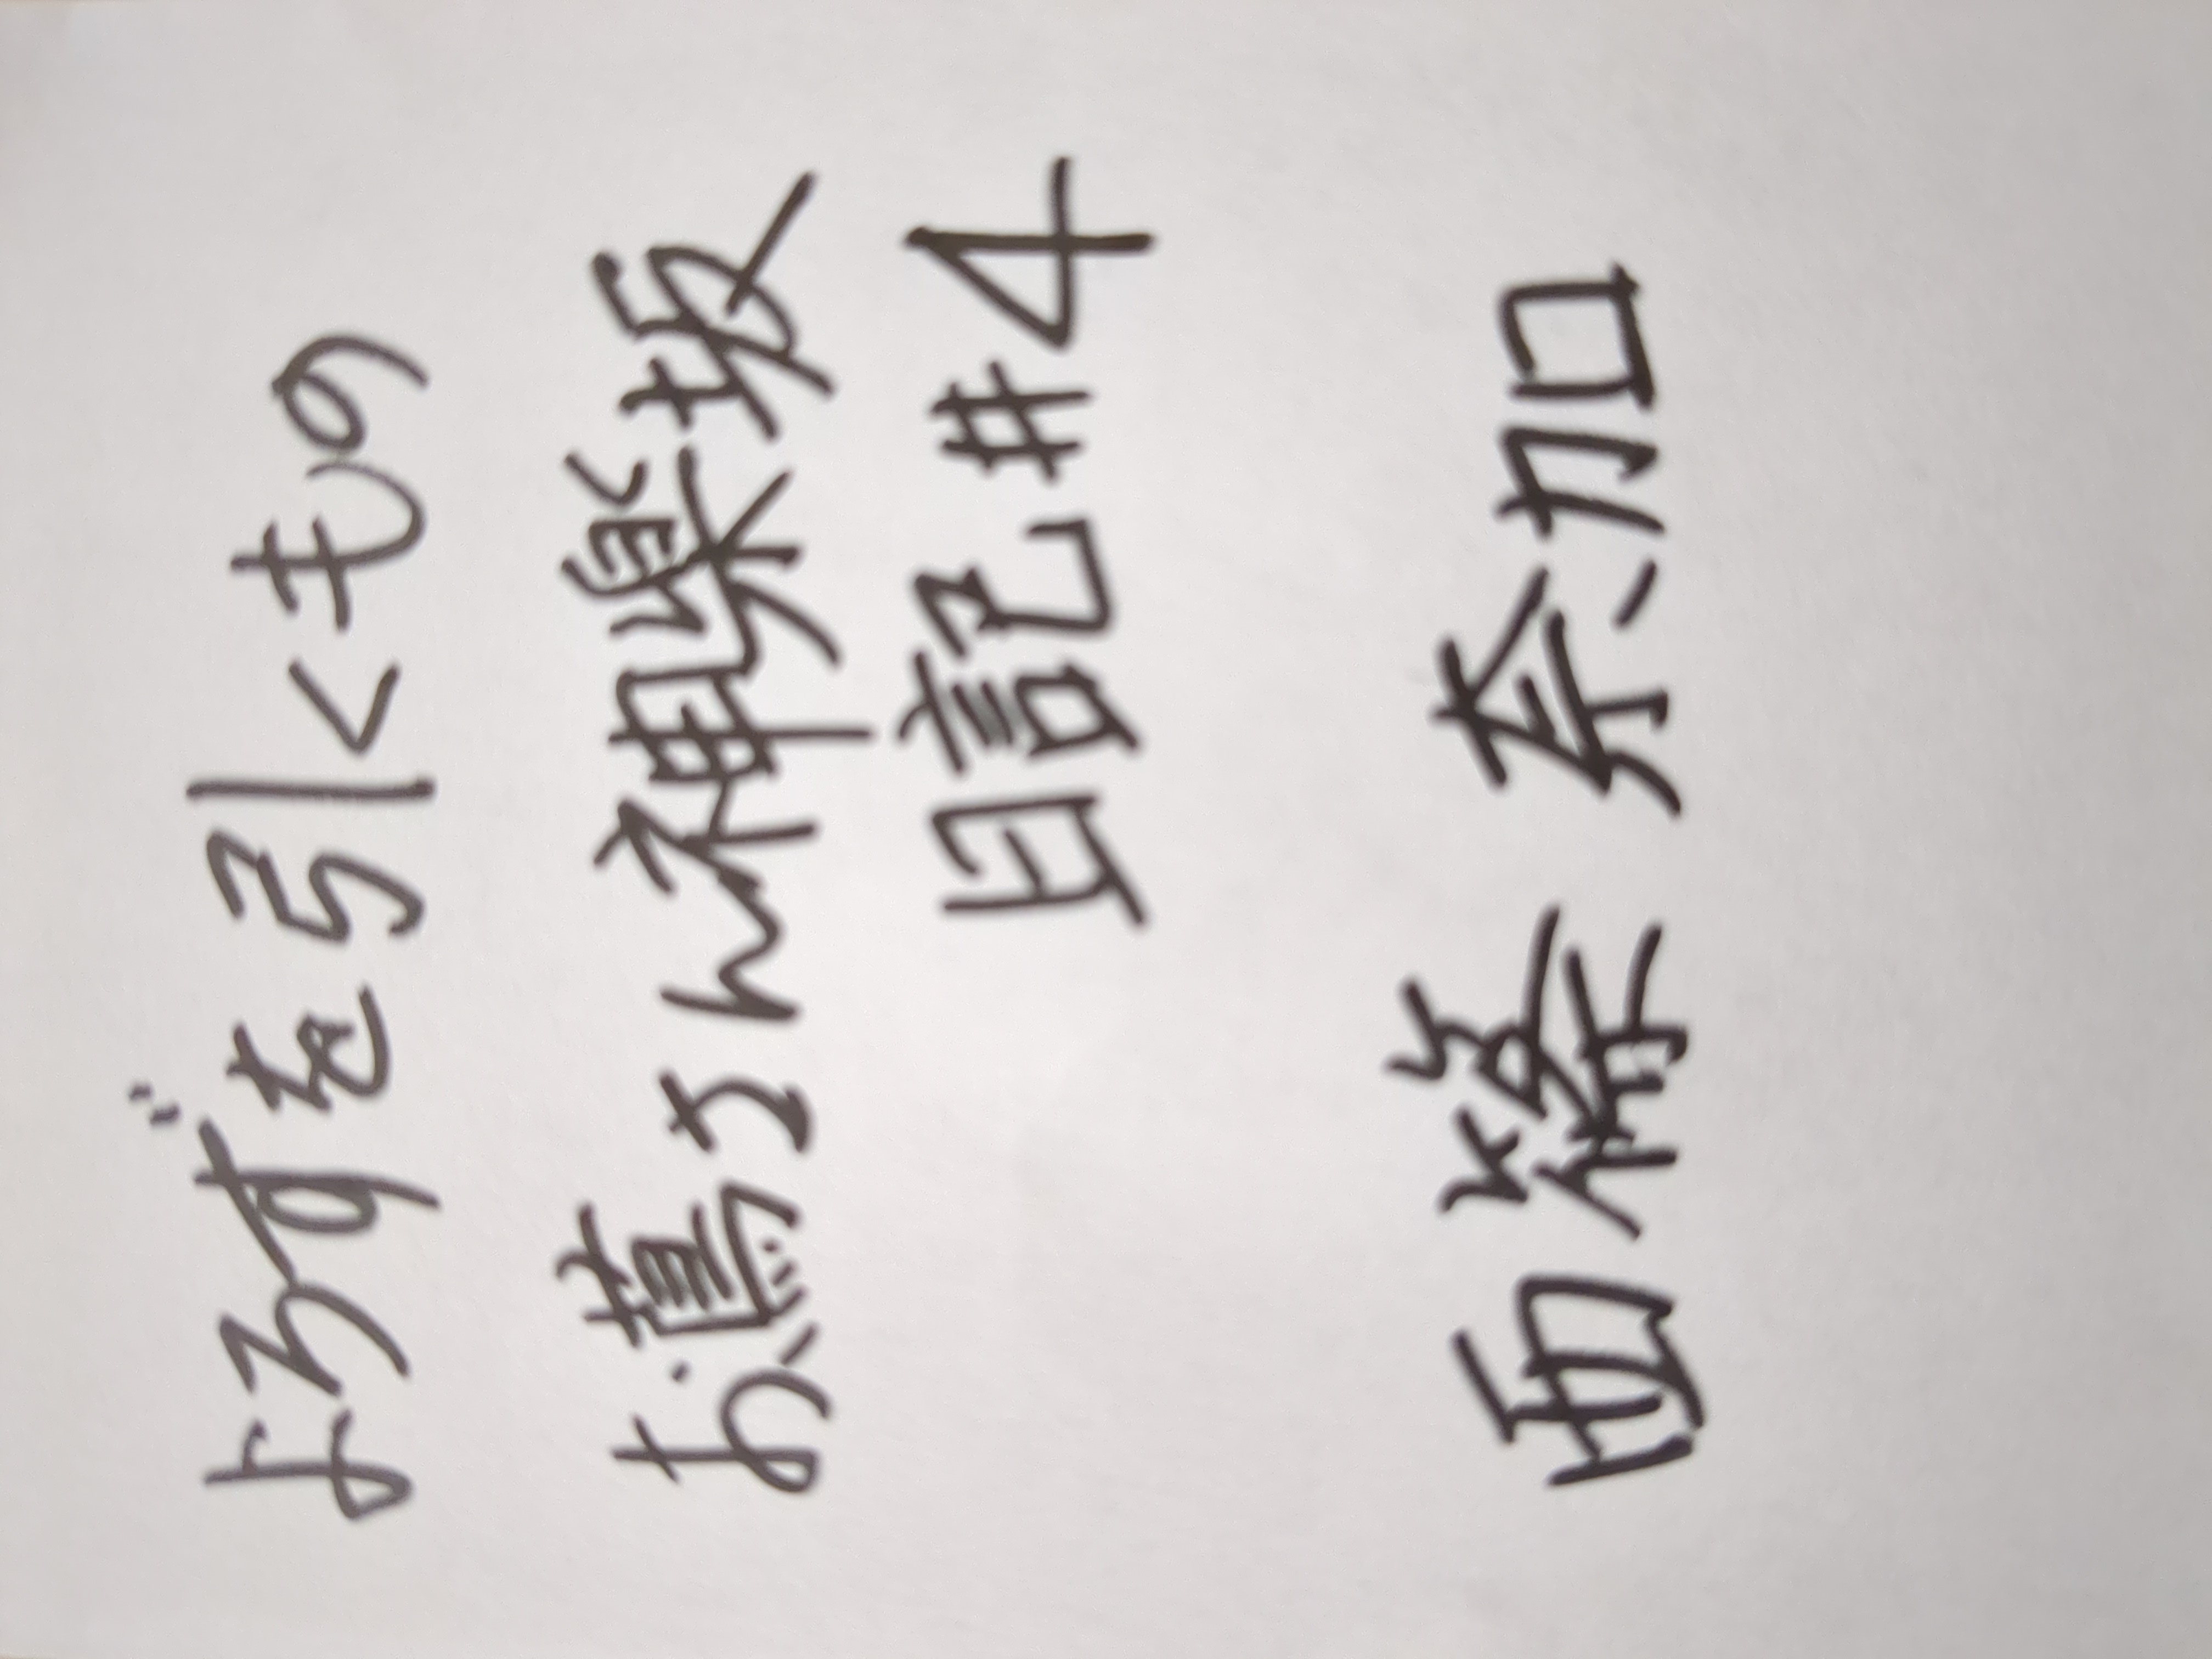 よろずを引くもの
お蔦さんの神楽坂
日記#4
西條 奈加